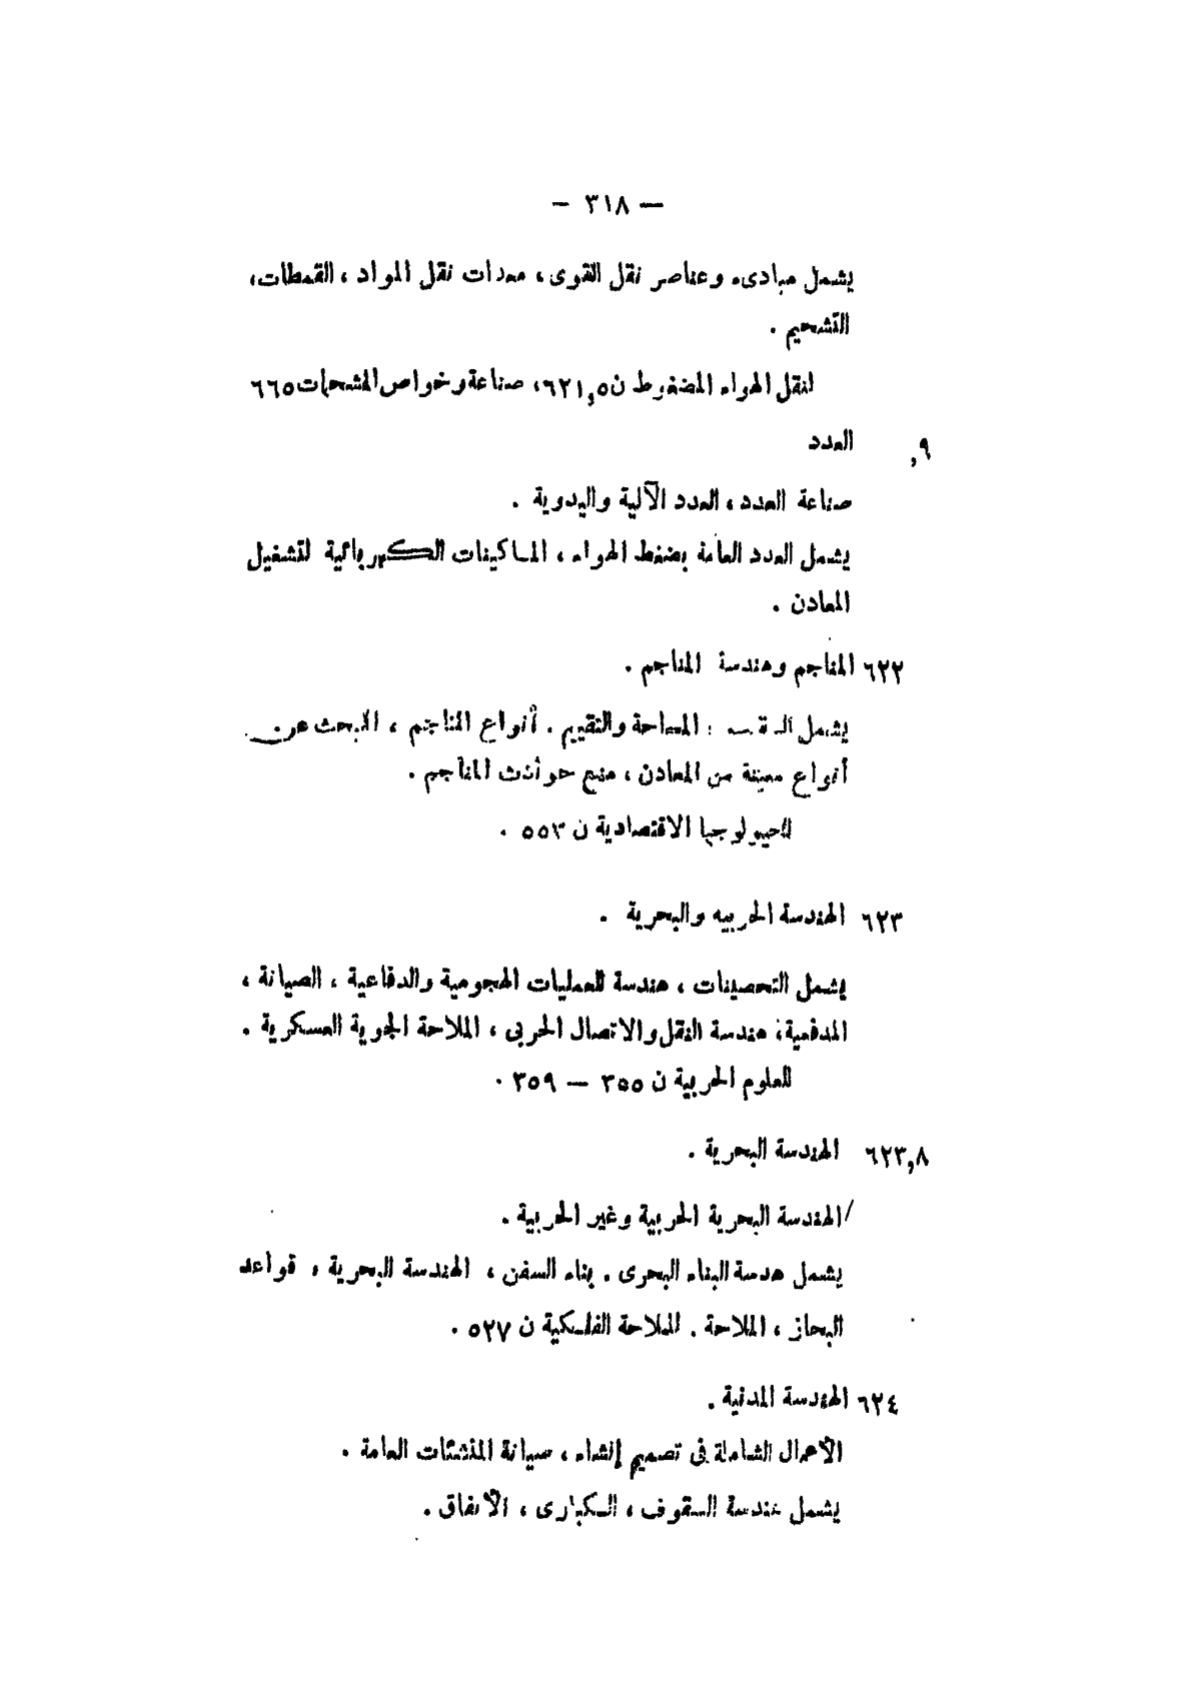 — ٣١٨ —
يشمل مبادىء وعناصر نقل القوى ، معدات نقل المواد ، القمطات ،
التشحيم .
لنقل الهواء المضغوط ن ٦٢١,٥ ، صناعة وخواص المشحمات ٦٦٥
٩, العدد
صناعة العدد ، العدد الآلية واليدوية .
يشمل العدد العامة بضغط الهواء ، الماكينات الكهربائية لتشغيل
المعادن .
٦٢٢ المناجم وهندسة المناجم .
يشمل : المساحة والتقييم . أنواع المناجم ، البحث عن
أنواع معينة من المعادن ، منع حوادث المناجم .
للجيولوجيا الاقتصادية ن ٥٥٣ .
٦٢٣ الهندسة الحربيه والبحرية .
يشمل التحصينات ، هندسة العمليات الهجومية والدفاعية ، الصيانة ،
المدفعية ، هندسة النقل والاتصال الحربى ، الملاحة الجوية العسكرية .
للعلوم الحربية ن ٣٥٥ — ٣٥٩ .
٦٢٣,٨ الهندسة البحرية .
الهندسة البحرية الحربية وغير الحربية .
يشمل هدسة البناء البحرى . بناء السفن ، الهندسة البحرية ، قواعد
البحار ، الملاحة . للملاحة الفلكية ن ٥٢٧ .
٦٢٤ الهندسة المدنية .
الأعمال الشاملة فى تصميم إنشاء ، صيانة المنشئات العامة .
يشمل هندسة السقوف ، الكبارى ، الأنفاق .